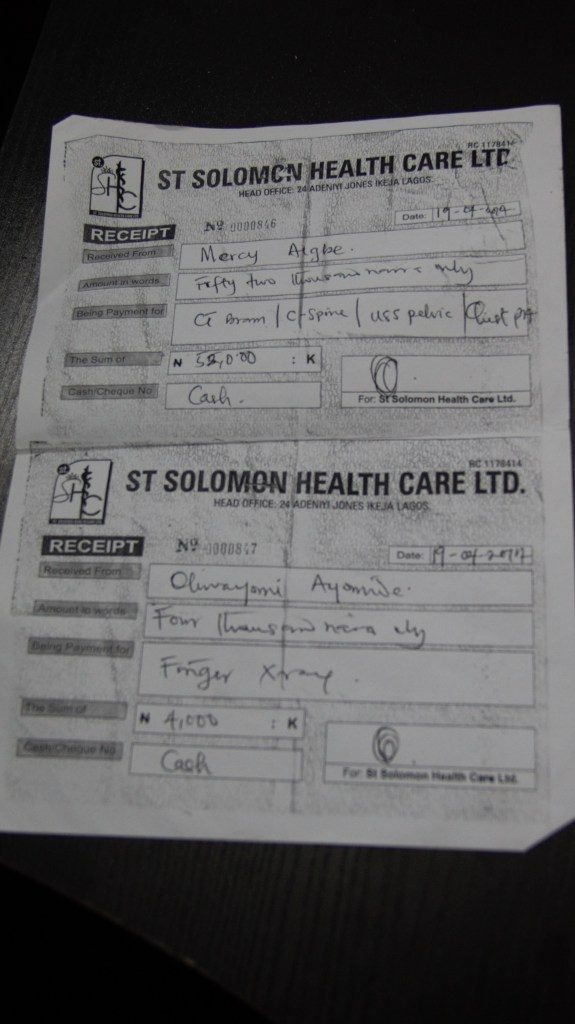 RC 1178414
ST SOLOMON HEALTH CARE LTD
HEAD OFFICE: 24 ADENIYI JONES IKEJA LAGOS.
RECEIPT Nº 0000846 Date:
Received From Mercy Aigbe.
Amount in words Fifty two thousand naira only
Being Payment for CT Brain / C-Spine / USS pelvic / Chest
The Sum of N 52,000 : K
Cash/Cheque No Cash.
For: St Solomon Health Care Ltd.
RC 1178414
ST SOLOMON HEALTH CARE LTD.
HEAD OFFICE: 24 ADENIYI JONES IKEJA LAGOS
RECEIPT Nº 0000847 Date: 19-04-2017
Received From Oluwayomi Ayomide.
Amount in words Four thousand naira only
Being Payment for Finger Xray.
The Sum of N 4,000 : K
Cash/Cheque No Cash
For: St Solomon Health Care Ltd.